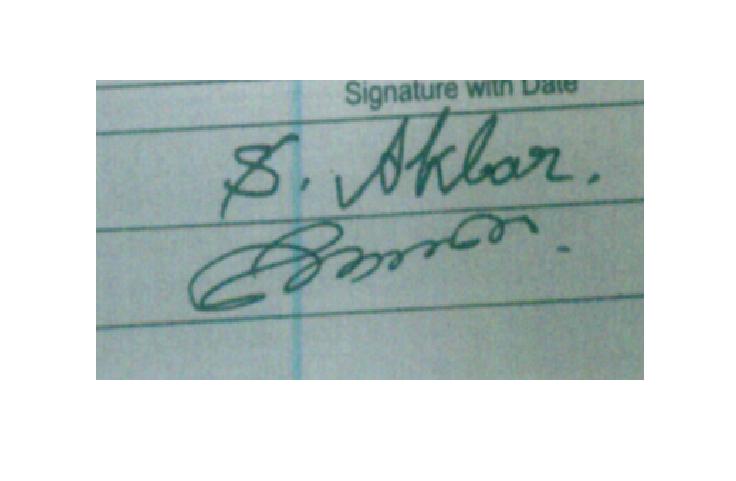 Signature with Date
S. Akbar.